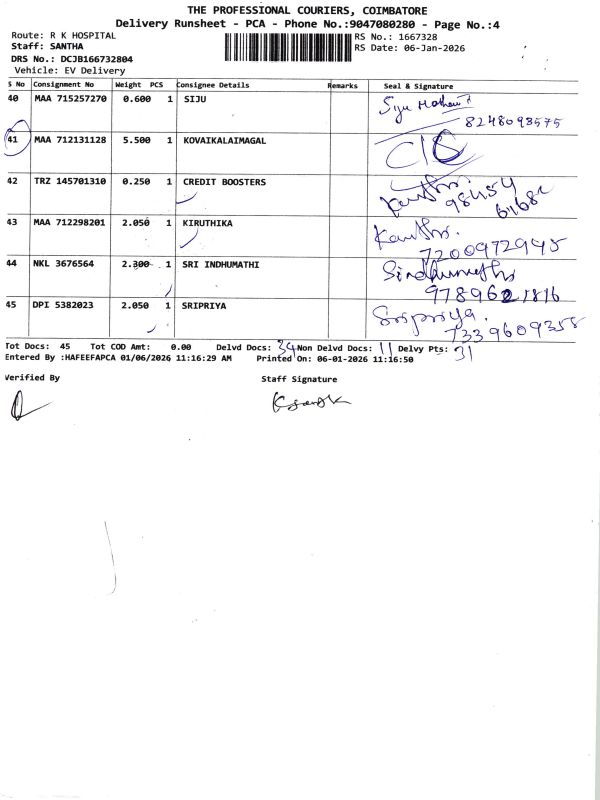 THE PROFESSIONAL COURIERS, COIMBATORE
Delivery Runsheet - PCA - Phone No.:9047080280 - Page No.:4
Route: R K HOSPITAL
Staff: SANTHA
DRS No.: DCJB166732804
Vehicle: EV Delivery
RS No.: 1667328
RS Date: 06-Jan-2026
S No Consignment No Weight PCS Consignee Details Remarks Seal & Signature
40 MAA 715257270 0.600 1 SIJU Siju Mathew
8248098575
41 MAA 712131128 5.500 1 KOVAIKALAIMAGAL
42 TRZ 145701310 0.250 1 CREDIT BOOSTERS
98454
43 MAA 712298201 2.050 1 KIRUTHIKA
7200972945
44 NKL 3676564 2.300 1 SRI INDHUMATHI Sindhumathi
9789621816
45 DPI 5382023 2.050 1 SRIPRIYA Sripriya.
7339609358
Tot Docs: 45 Tot COD Amt: 0.00 Delvd Docs: 34 Non Delvd Docs: 11 Delvy Pts: 31
Entered By :HAFEEFAPCA 01/06/2026 11:16:29 AM Printed On: 06-01-2026 11:16:50
Verified By Staff Signature